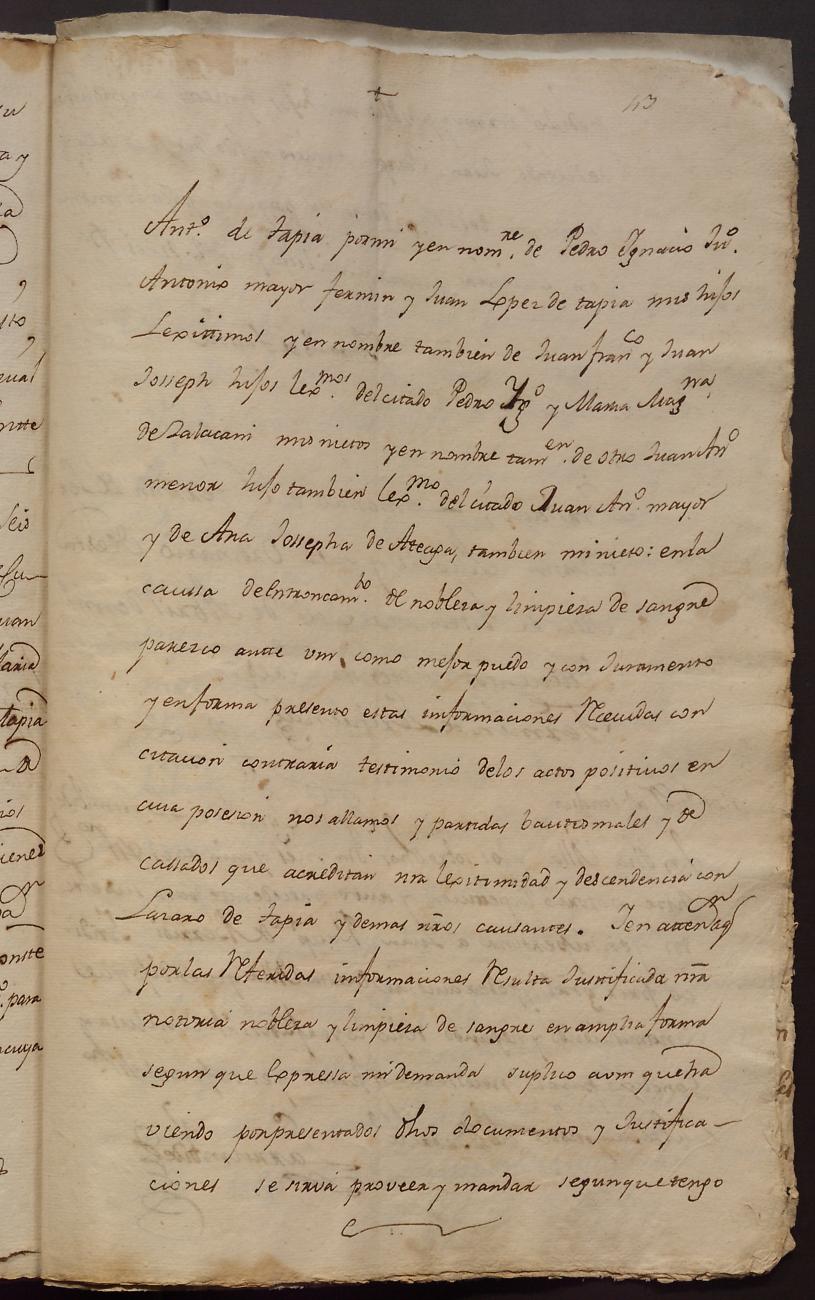 +
43
Antº. de tapia por mi y en nomre. de Pedro Ygnacio Juº.
Antonio mayor fermin y Juan Lopez de tapia mis hijos
Lexittimos y en nombre tambien de Juan franco y Juan
Josseph hijos lexmos. del citado Pedro Ygº y Maria Magna
de Zalacani mis nietos y en nombre tamen. de otro Juan Anº
menor hijo tambien lexmo. del citado Juan Anº. mayor
y de Ana Jossepha de Ateaga, tambien mi nieto: en la
caussa de Entroncamto. de nobleza y limpieza de sangre
parezco antte vm como mejor puedo y con Juramento
y en forma presento estas informaciones Recividas con
citacion contraria testimonio de los actos positivos en
cuia posesion nos allamos y partidas bautismales y de
cassados que acreditan nra lexitimidad y descendencia con
Lazaro de tapia y demas nros causantes. Y en attenon aq
por las Referidas informaciones Resulta Justificada nra
notoria nobleza y limpieza de sangre en amplia forma
segun que Expressa mi demanda suplico a vm que ha
viendo por presentados dhos documentos y Justifica-
ciones se sirva proveer y mandar segun que tengo